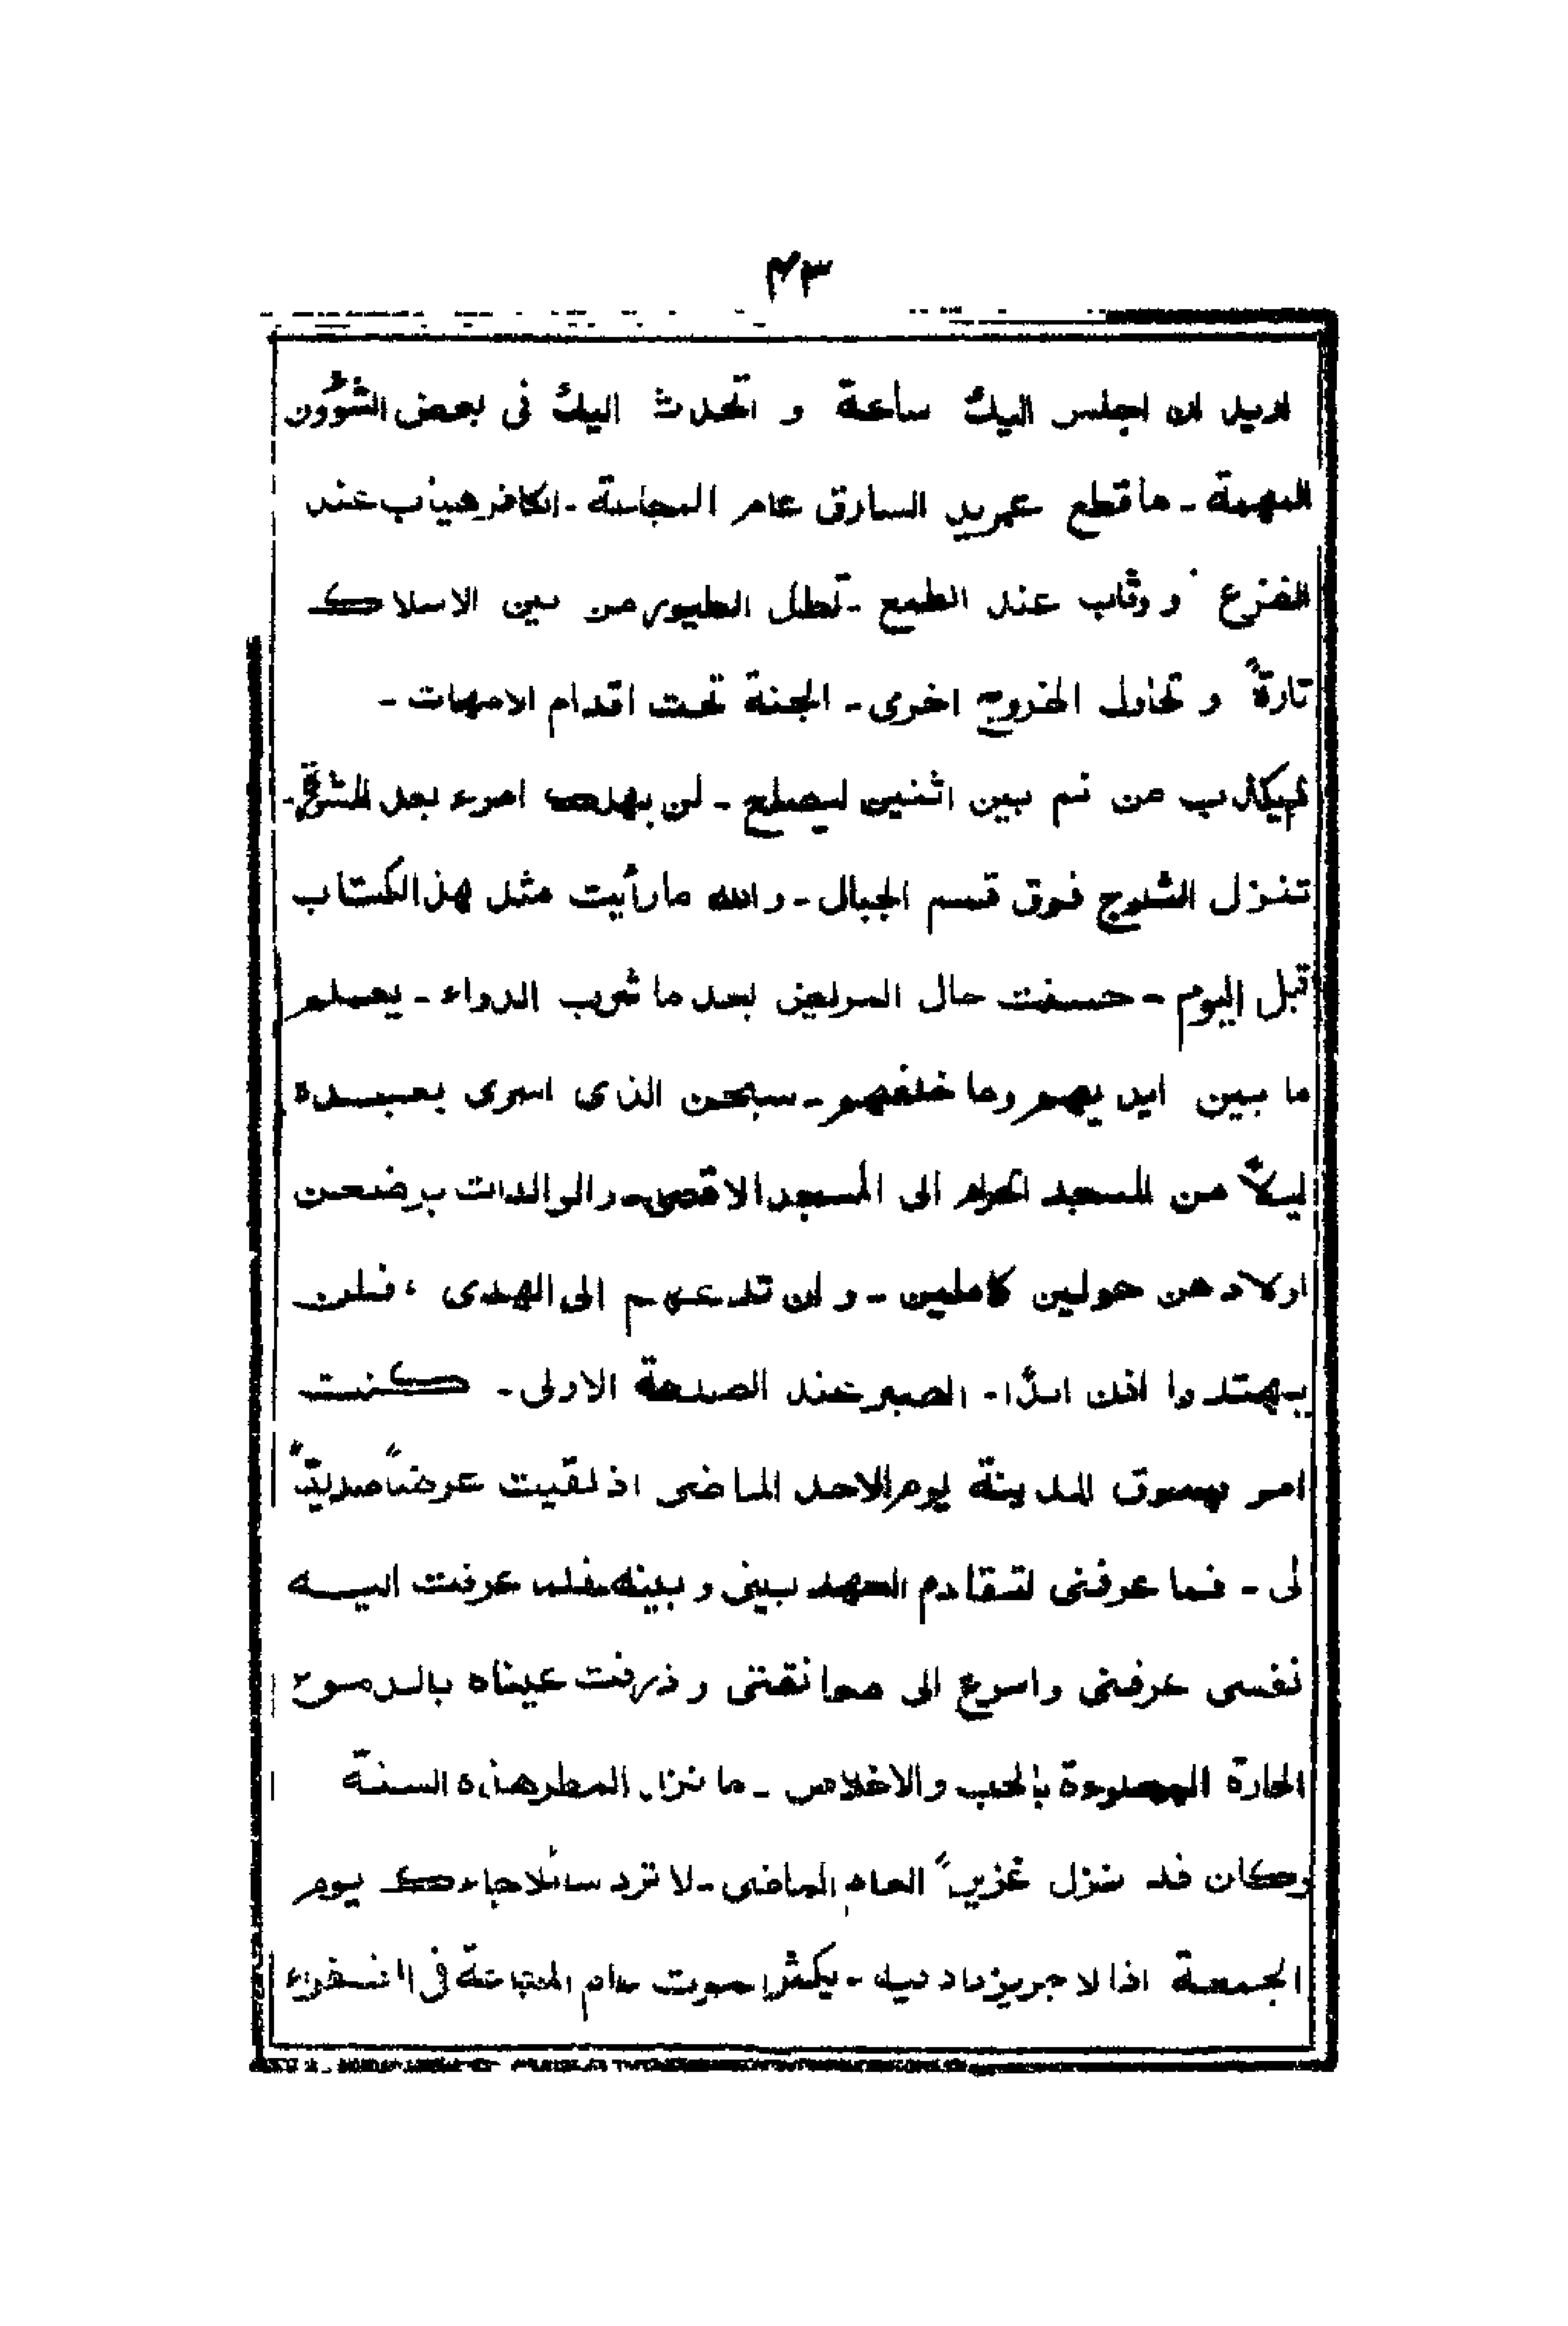 ۴۳
اريد ان اجلس اليك ساعة و اتحدث اليك فى بعض الشؤون
المهمة - ما قطع عمر يد السارق عام المجاعة - الكافر هيّاب عند
الفزع و وثّاب عند الطمع - تطل الطيور من بين الاسلاك
تارةً و تحاول الخروج اخرى - الجنة تحت اقدام الامهات -
لم يكذب من نم بين اثنين ليصلح - لن يهلك امرء بعد المشورة -
تنزل الثلوج فوق قمم الجبال - والله ما رأيت مثل هذ الكتاب
قبل اليوم - حسنت حال المريض بعد ما شرب الدواء - يعلم
ما بين ايديهم وما خلفهم - سبحن الذى اسرى بعبده
ليلاً من المسجد الحرام الى المسجد الاقصى - والوالدات يرضعن
اولادهن حولين كاملين - و ان تدعهم الى الهدى ، فلن
يهتدوا اذن ابدًا - الصبر عند الصدمة الاولى - كنت
امر بسوق المدينة يوم الاحد الماضى اذ لقيت عرضاً صديقاً
لى - فما عرفنى لتقادم العهد بينى و بينه فلما عرفت اليه
نفسى عرفنى واسرع الى معانقتى و ذرفت عيناه بالدموع
الحارة المملوءة بالحب والاخلاص - ما نزل المطر هذه السنة
وكان قد نزل غزيراً العام الماضى - لا ترد سائلا جاءك يوم
الجمعة اذا لاجر يزداد فيه - يكثر صوت عام المجاعة فى الفقراء